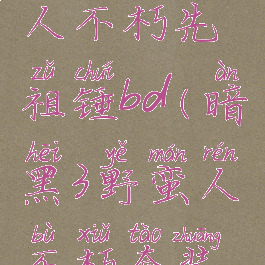 人不朽先
zǔ chuí àn
祖锤bd(暗
hēi yě mán rén
黑3野蛮人
bù xiǔ tào zhuāng
不朽套装